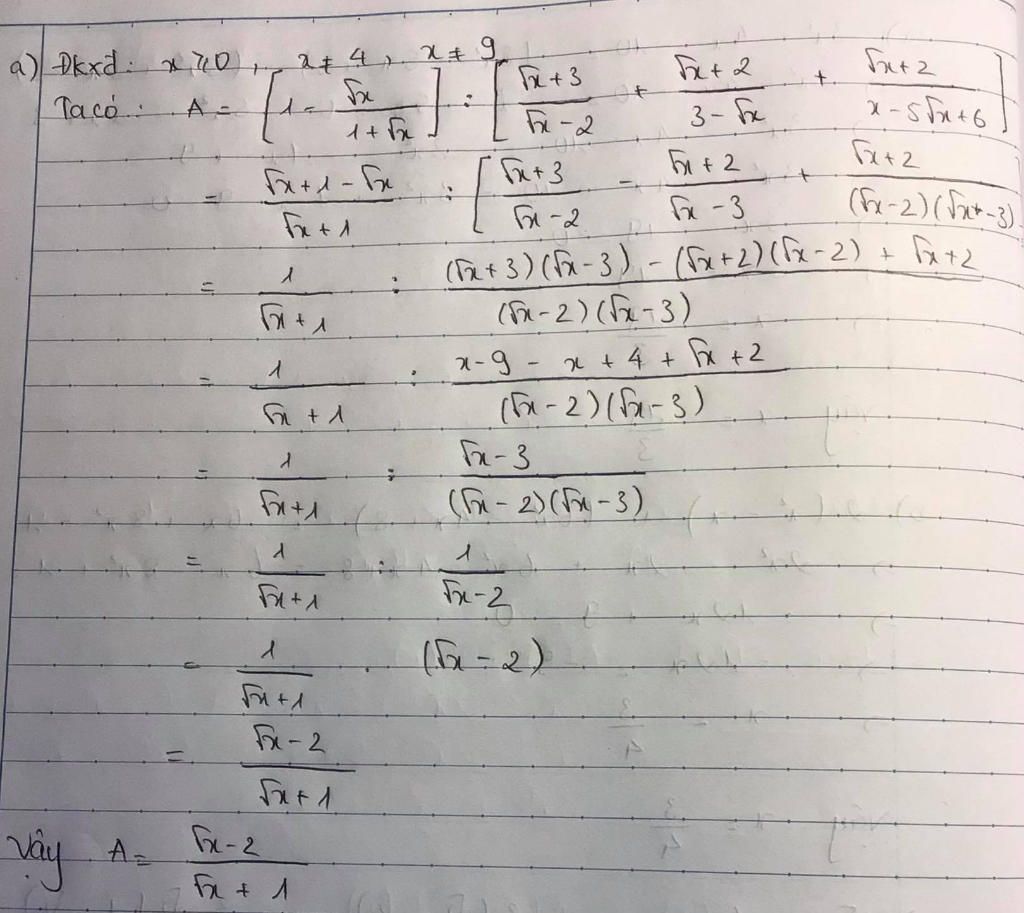 a) Đkxđ: x ⩾ 0, x ≠ 4, x ≠ 9
Ta có: A = [1 - √x/(1+√x)] : [(√x+3)/(√x-2) + (√x+2)/(3-√x) + (√x+2)/(x-5√x+6)]
= (√x+1-√x)/(√x+1) : [(√x+3)/(√x-2) - (√x+2)/(√x-3) + (√x+2)/((√x-2)(√x-3))
= 1/(√x+1) : ((√x+3)(√x-3) - (√x+2)(√x-2) + √x+2)/((√x-2)(√x-3))
= 1/(√x+1) : (x-9 - x+4+√x+2)/((√x-2)(√x-3))
= 1/(√x+1) : (√x-3)/((√x-2)(√x-3))
= 1/(√x+1) : 1/(√x-2)
= 1/(√x+1) . (√x-2)
= (√x-2)/(√x+1)
Vậy A = (√x-2)/(√x+1)